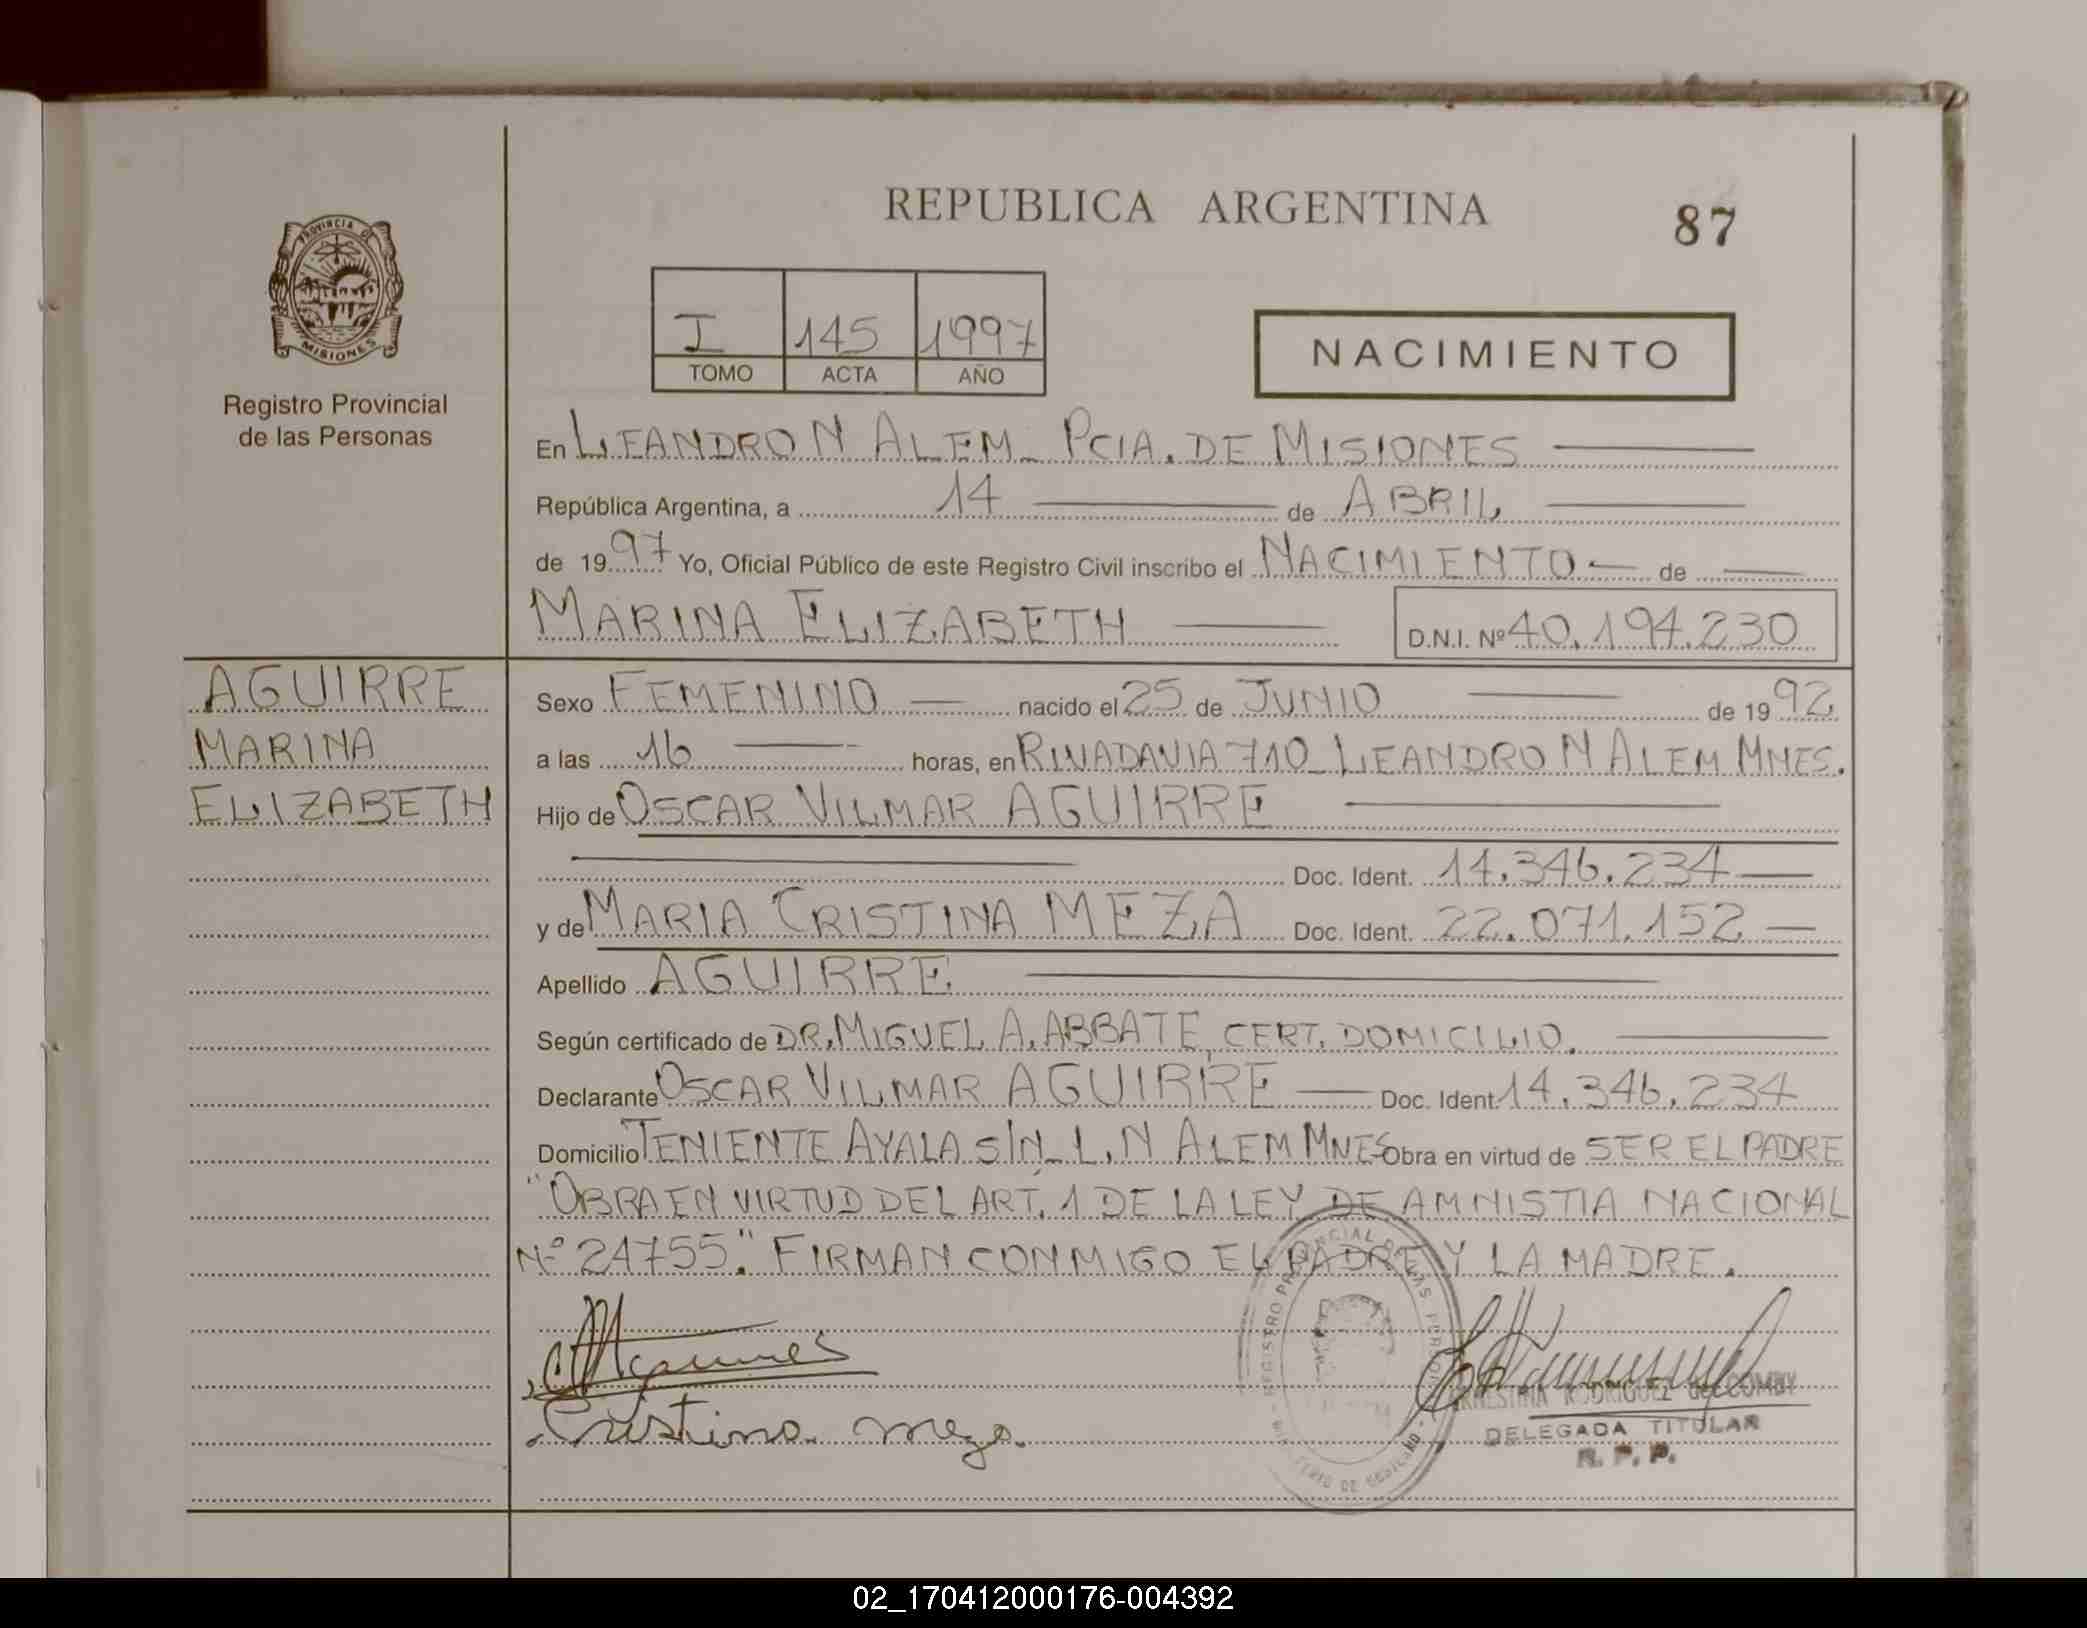 REPUBLICA ARGENTINA
87
PROVINCIA DE
MISIONES
Registro Provincial
de las Personas
I 145 1997
TOMO ACTA AÑO
NACIMIENTO
En LEANDRO N ALEM_ PCIA. DE MISIONES
República Argentina, a 14 de ABRIL
de 1997 Yo, Oficial Público de este Registro Civil inscribo el NACIMIENTO de
MARINA ELIZABETH D.N.I. Nº 40.194.230
AGUIRRE
MARINA
ELIZABETH
Sexo FEMENINO nacido el 25 de JUNIO de 1992
a las 16 horas, en RIVADAVIA 710_ LEANDRO N ALEM MNES.
Hijo de OSCAR VILMAR AGUIRRE
Doc. Ident. 14.346.234
y de MARIA CRISTINA MEZA Doc. Ident. 22.071.152
Apellido AGUIRRE
Según certificado de DR. MIGUEL A. ABBATE, CERT. DOMICILIO.
Declarante OSCAR VILMAR AGUIRRE Doc. Ident. 14.346.234
Domicilio TENIENTE AYALA S/N_ L. N ALEM MNES Obra en virtud de SER EL PADRE
"OBRA EN VIRTUD DEL ART. 1 DE LA LEY DE AMNISTIA NACIONAL
Nº 24755." FIRMAN CONMIGO EL PADRE Y LA MADRE.
Cristina meza.
REGISTRO PROVINCIAL DE LAS PERSONAS
MINISTERIO DE GOBIERNO
ERNESTINA RODRIGUEZ de COMBY
DELEGADA TITULAR
R. P. P.
02_170412000176-004392